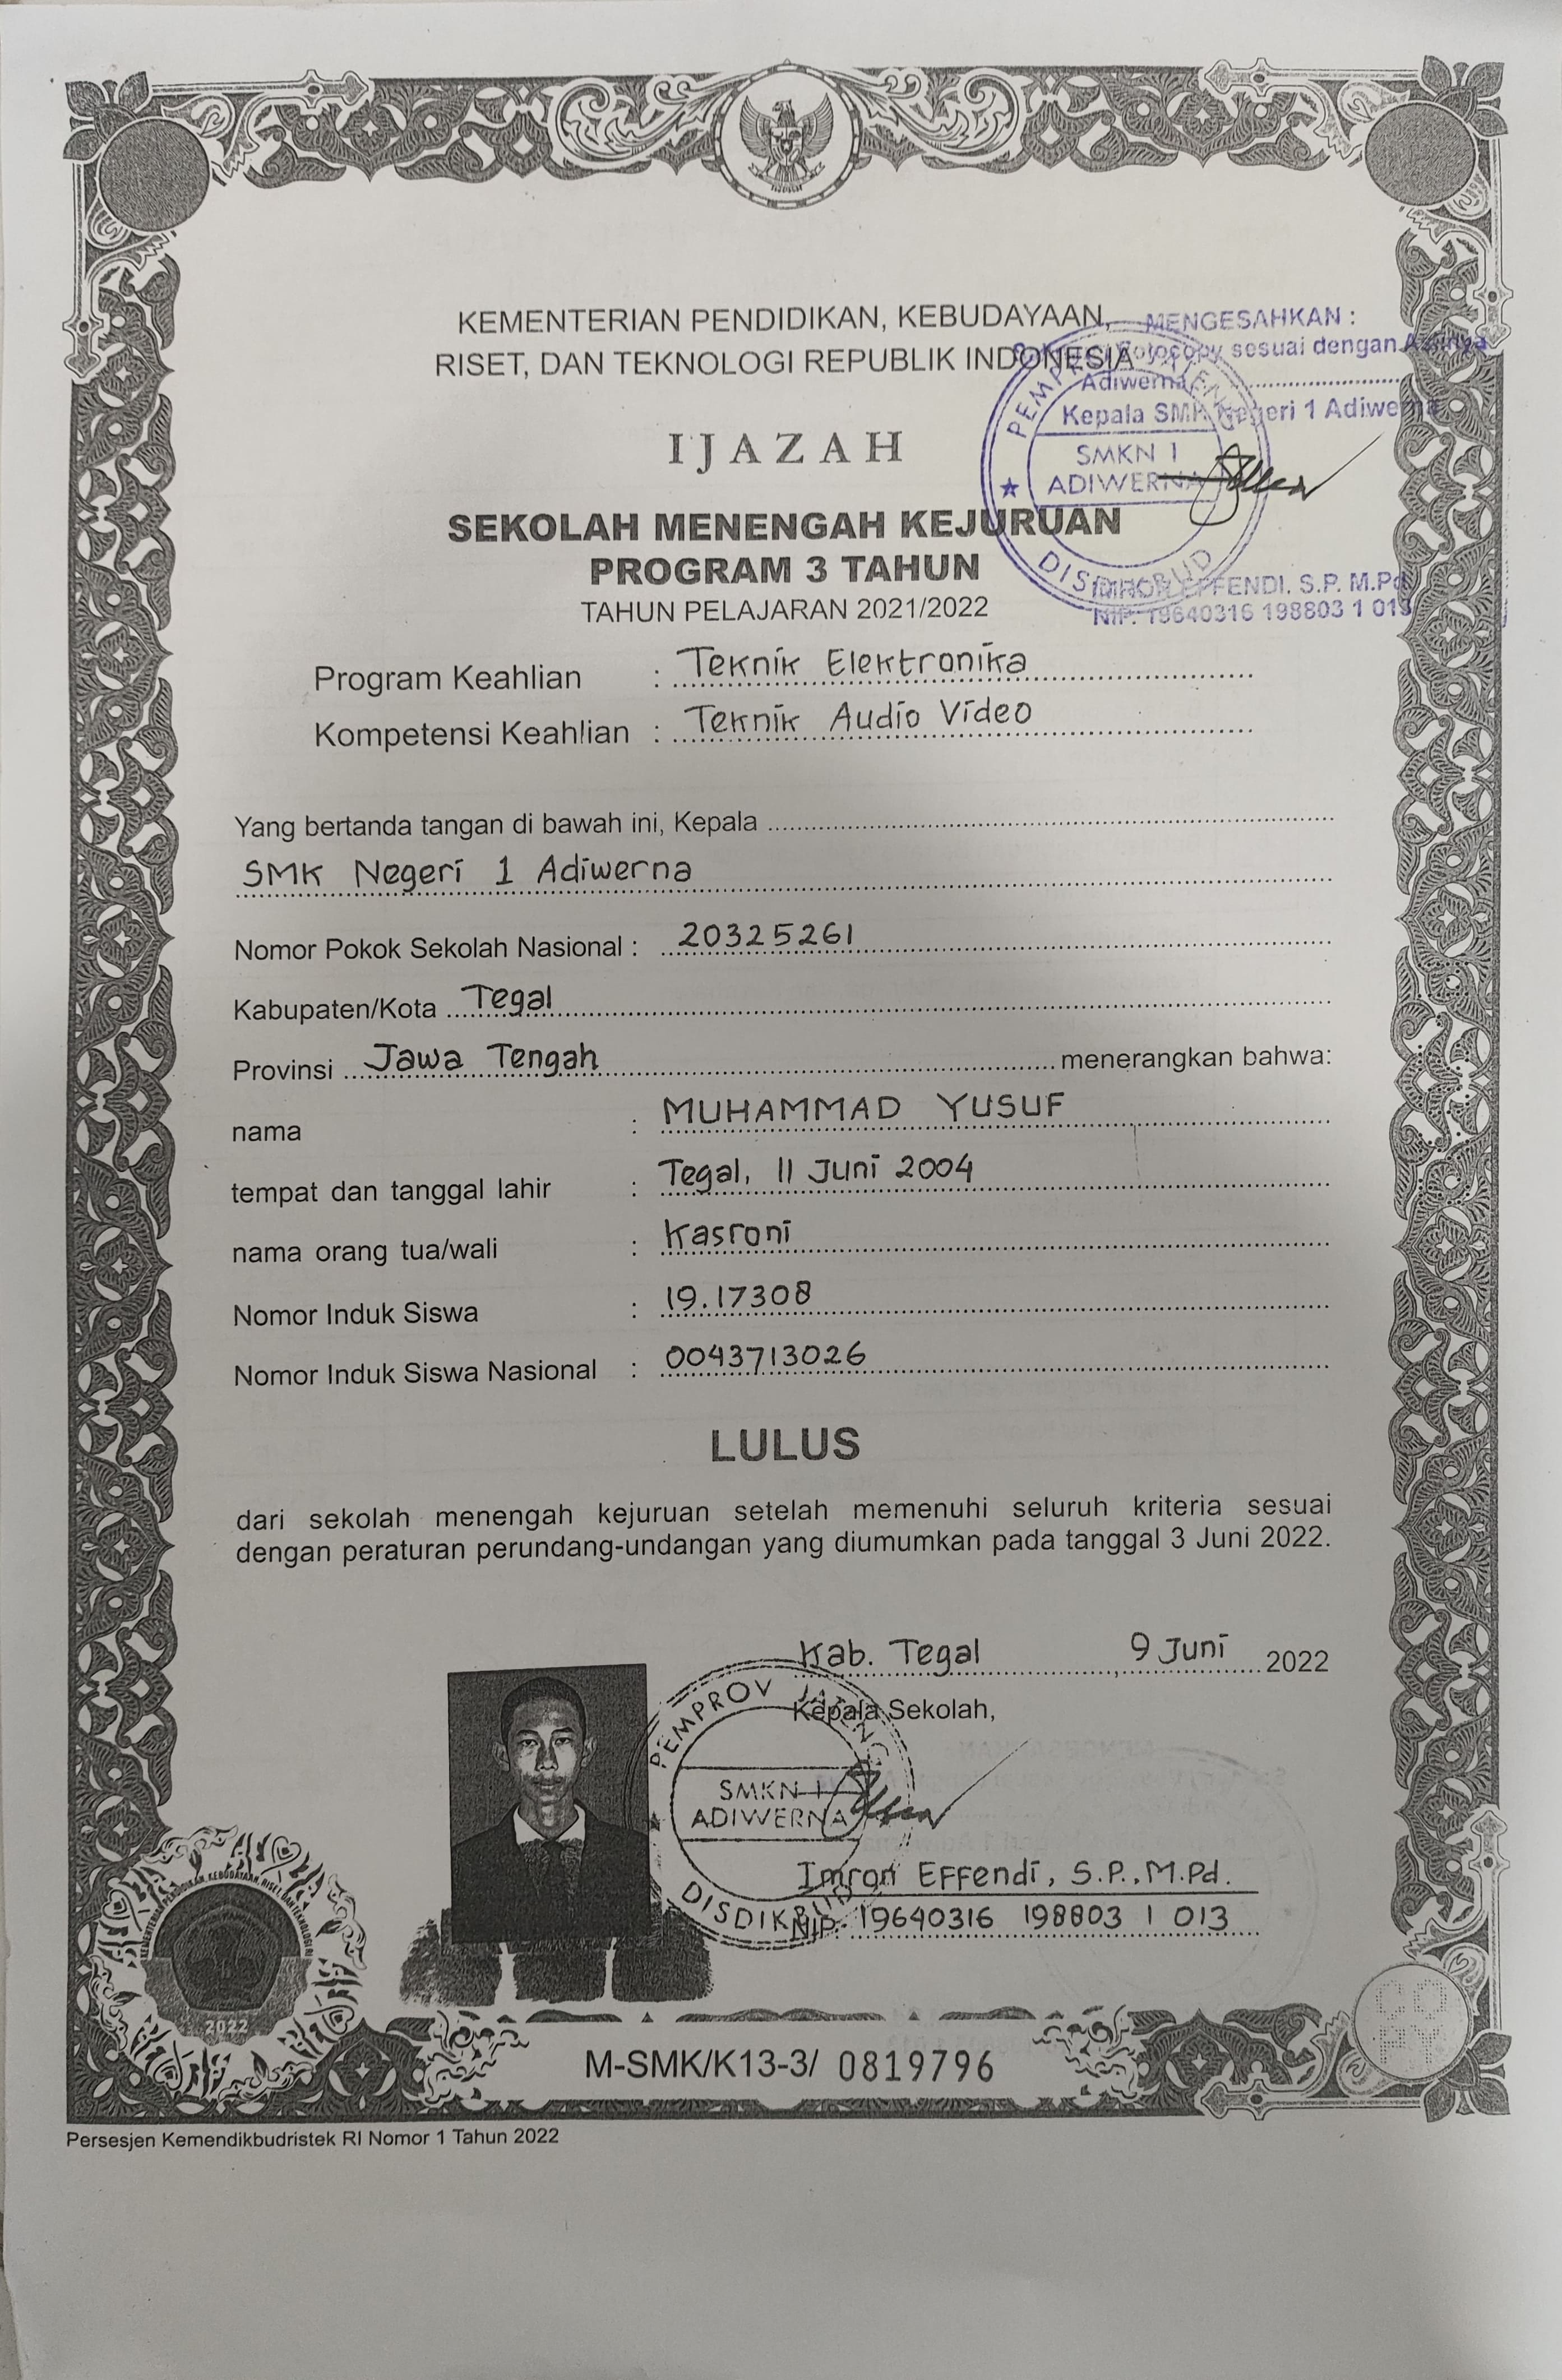 KEMENTERIAN PENDIDIKAN, KEBUDAYAAN,
RISET, DAN TEKNOLOGI REPUBLIK INDONESIA
MENGESAHKAN :
Fotocopy sesuai dengan Aslinya
Adiwerna, ........................
Kepala SMK Negeri 1 Adiwerna
PEMPROV JATENG
SMKN 1
ADIWERNA
DISDIKBUD
IMRON EFFENDI. S.P. M.Pd
NIP. 19640316 198803 1 013
IJAZAH
SEKOLAH MENENGAH KEJURUAN
PROGRAM 3 TAHUN
TAHUN PELAJARAN 2021/2022
Program Keahlian : Teknik Elektronika
Kompetensi Keahlian : Teknik Audio Video
Yang bertanda tangan di bawah ini, Kepala
SMK Negeri 1 Adiwerna
Nomor Pokok Sekolah Nasional : 20325261
Kabupaten/Kota Tegal
Provinsi Jawa Tengah menerangkan bahwa:
nama : MUHAMMAD YUSUF
tempat dan tanggal lahir : Tegal, 11 Juni 2004
nama orang tua/wali : Kasroni
Nomor Induk Siswa : 19.17308
Nomor Induk Siswa Nasional : 0043713026
LULUS
dari sekolah menengah kejuruan setelah memenuhi seluruh kriteria sesuai
dengan peraturan perundang-undangan yang diumumkan pada tanggal 3 Juni 2022.
Kab. Tegal, 9 Juni 2022
Kepala Sekolah,
PEMPROV JATENG
SMKN 1
ADIWERNA
DISDIKBUD
Imron Effendi, S.P., M.Pd.
NIP. 19640316 198803 1 013
KEMENTERIAN PENDIDIKAN, KEBUDAYAAN, RISET, DAN TEKNOLOGI RI
2022
COPY
M-SMK/K13-3/ 0819796
Persesjen Kemendikbudristek RI Nomor 1 Tahun 2022